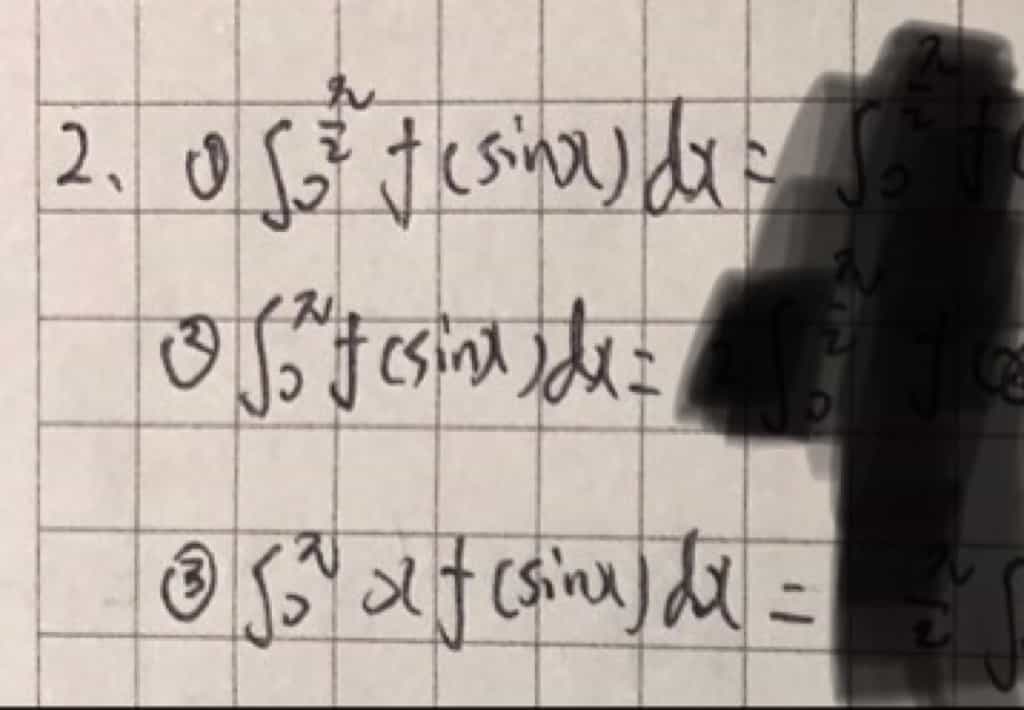 2、① ∫₀^(π/2) f(sinx)dx = ∫₀^(π/2) f(
② ∫₀^π f(sinx)dx = 2∫₀^(π/2) f(
③ ∫₀^π x f(sinx)dx = π/2 ∫